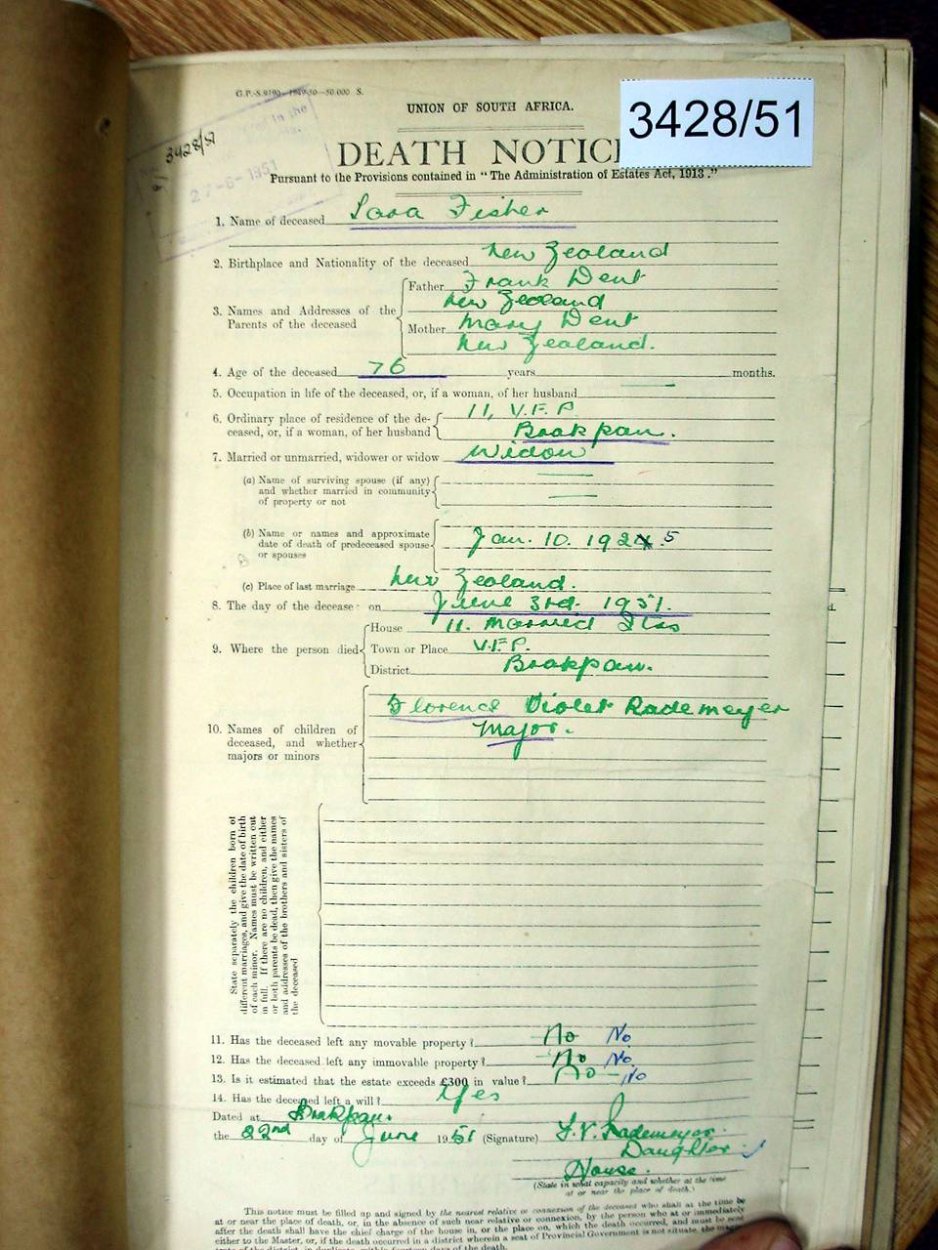 G.P.-S.9190—1949-50—50,000 S.
UNION OF SOUTH AFRICA.
3428/51
3428/51
27-6-1951
DEATH NOTICE
Pursuant to the Provisions contained in "The Administration of Estates Act, 1913."
1. Name of deceased Sara Fisher
2. Birthplace and Nationality of the deceased New Zealand
3. Names and Addresses of the Parents of the deceased
Father Frank Dent
New Zealand
Mother Mary Dent
New Zealand.
4. Age of the deceased 76 years months.
5. Occupation in life of the deceased, or, if a woman, of her husband —
6. Ordinary place of residence of the de-
ceased, or, if a woman, of her husband
11, V.F.P.
Brakpan.
7. Married or unmarried, widower or widow Widow
(a) Name of surviving spouse (if any)
and whether married in community
of property or not
(b) Name or names and approximate
date of death of predeceased spouse
or spouses
Jan. 10. 1925
(c) Place of last marriage New Zealand.
8. The day of the decease on June 3rd. 1951.
9. Where the person died
House 11. Married Qtrs
Town or Place V.F.P.
District Brakpan.
10. Names of children of
deceased, and whether
majors or minors
Florence Violet Rademeyer
Major.
State separately the children born of
different marriages, and give the date of birth
of each minor. Names must be written out
in full. If there are no children, and either
or both parents be dead, then give the names
and addresses of the brothers and sisters of
the deceased
11. Has the deceased left any movable property? No No
12. Has the deceased left any immovable property? No No
13. Is it estimated that the estate exceeds £300 in value? No — No
14. Has the deceased left a will? Yes
Dated at Brakpan.
the 22nd day of June 1951 (Signature) F.V. Rademeyer.
Daughter
House.
(State in what capacity and whether at the time
at or near the place of death.)
This notice must be filled up and signed by the nearest relative or connexion of the deceased who shall at the time be
at or near the place of death, or, in the absence of such near relative or connexion, by the person who at or immediately
after the death shall have the chief charge of the house in, or the place on, which the death occurred, and must be sent
either to the Master, or, if the death occurred in a district wherein a seat of Provincial Government is not situate, the